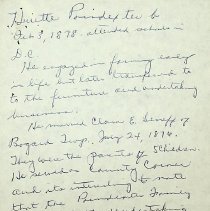 Huitte Poindexter b
Feb 3, 1878. attended schools in
D.C.
He engaged in farming early
in life but later transferred to
to the furniture and undertaking
business.
He married Clara E. Seneff of
Bogard Twp. July 24, 1894.
They are the parents of 5 children.
He served as County Coroner
and its interesting to note
that the Poindexter Family
undertaking